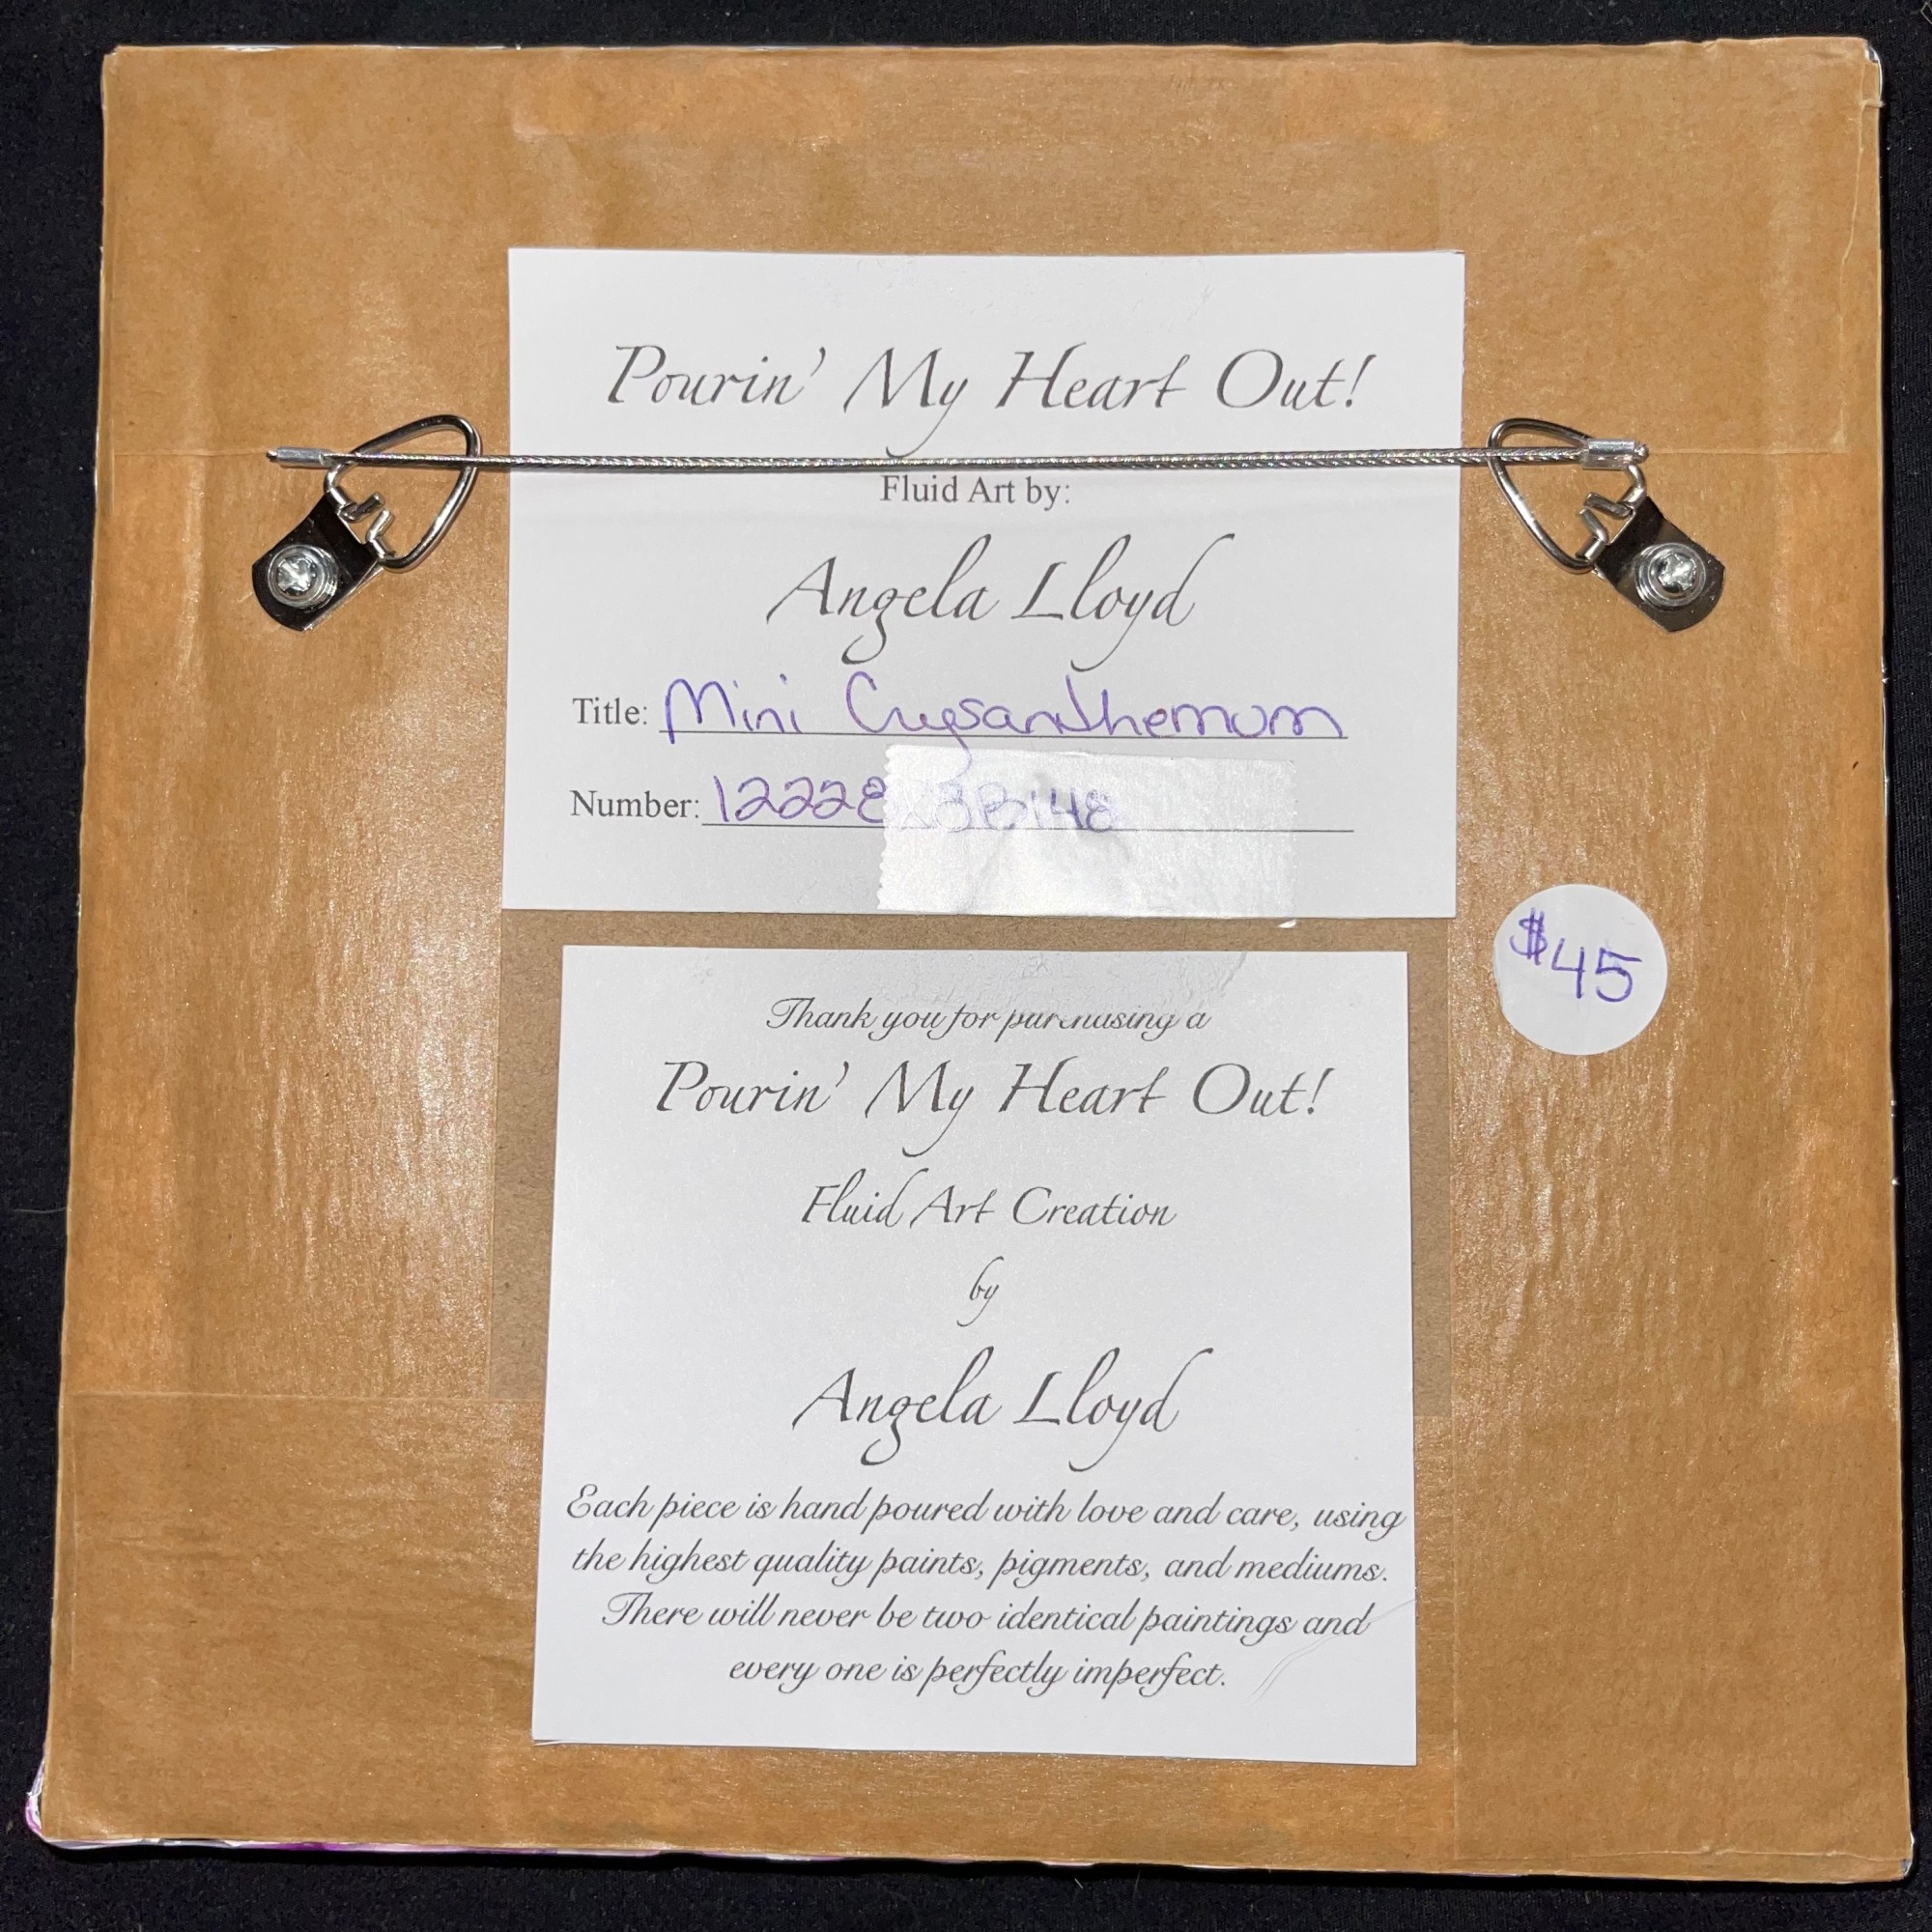 Pourin' My Heart Out!
Fluid Art by:
Angela Lloyd
Title: Mini Crysanthemum
Number: 12228
$45
Thank you for purchasing a
Pourin' My Heart Out!
Fluid Art Creation
by
Angela Lloyd
Each piece is hand poured with love and care, using
the highest quality paints, pigments, and mediums.
There will never be two identical paintings and
every one is perfectly imperfect.